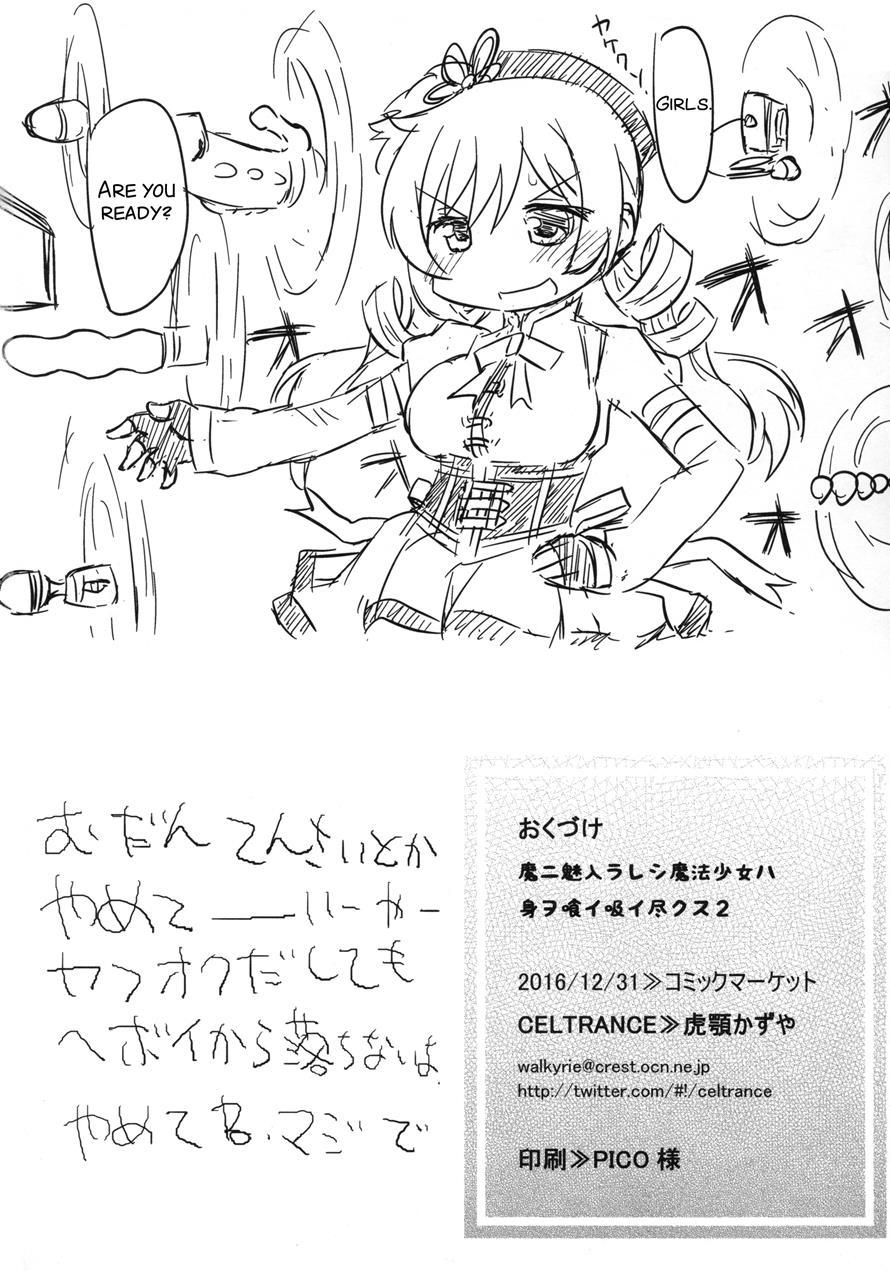 ヤケクソ
GIRLS.
ARE YOU
READY?
むだんてんさいとか
やめて――いーかー
ヤフオクだしても
ヘボイから落ちないよ
やめてね、マジで
おくづけ
魔ニ魅入ラレシ魔法少女ハ
身ヲ喰イ吸イ尽クス2
2016/12/31≫コミックマーケット
CELTRANCE≫虎顎かずや
walkyrie@crest.ocn.ne.jp
http://twitter.com/#!/celtrance
印刷≫PICO 様